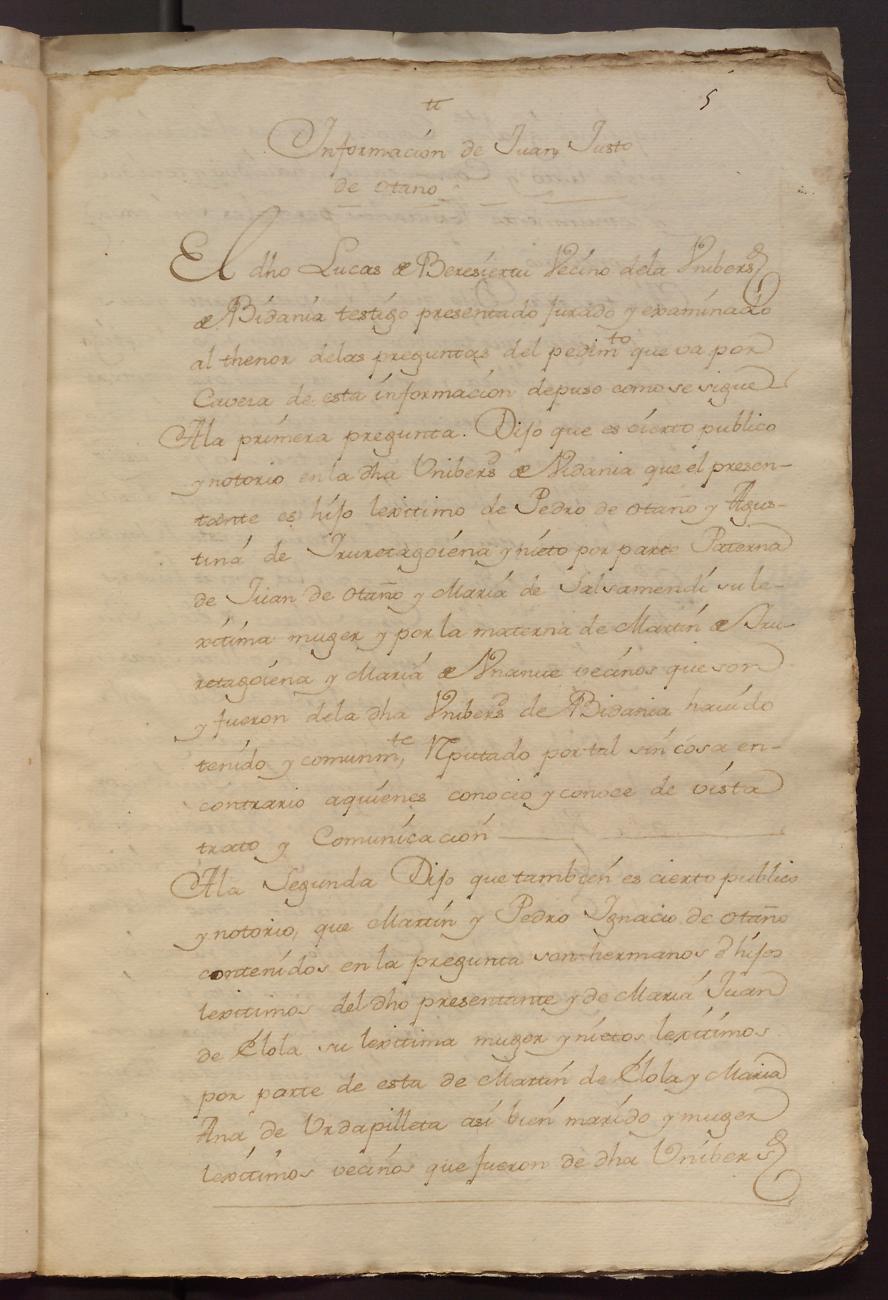 5
tt
Informacion de Juan Justo
de otaño
El dho Lucas de Beresiertui Vecino dela Vnibersd
de Bidania testigo presentado jurado y examinado
al thenor delas preguntas del pedimto que va por
Cavera de esta informacion depuso como se sigue
Ala primera pregunta. Dijo que es cierto publico
y notorio en la dha Vnibersd de Vidania que el presen-
tante es hijo lexitimo de Pedro de otaño y Agus-
tina de Iruretagoiena y nieto por parte Paterna
de Juan de otaño y Maria de Salsamendi su le-
xitima muger y por la materna de Martin de Iru-
retagoiena y Maria de Vnanue vecinos que son
y fueron dela dha Vnibersd de Bidania havido
tenido y comunmte Rputado por tal sin cosa en-
contrario aquienes conocio y conoce de vista
trato y Comunicacion
Ala Segunda Dijo que tambien es cierto publico
y notorio, que Martin y Pedro Ignacio de otaño
contenidos en la pregunta son hermanos è hijos
lexitimos del dho presentante y de Maria Juan
de Elola su lexitima muger y nietos lexitimos
por parte de esta de Martin de Elola y Maria
Ana de Vrdapilleta asi bien marido y muger
lexitimos vecinos que fueron de dha Vnibersd